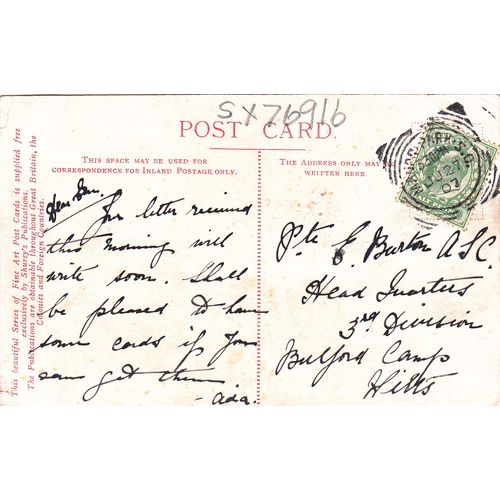 SX76916
POST CARD.
THIS SPACE MAY BE USED FOR
CORRESPONDENCE FOR INLAND POSTAGE ONLY.
THE ADDRESS ONLY MAY BE
WRITTEN HERE.
This beautiful Series of Fine Art Post Cards is supplied free
exclusively by Shurey's Publications.
The Publications are obtainable throughout Great Britain, the
Colonies and Foreign Countries.
Dear
for letter received
this morning will
write soon. Shall
be pleased to have
some cards if you
can get them
- Ada.
Pte E Burton A.S.C.
Head Quarters
3rd Division
Bulford Camp
Wilts
JU 27
07